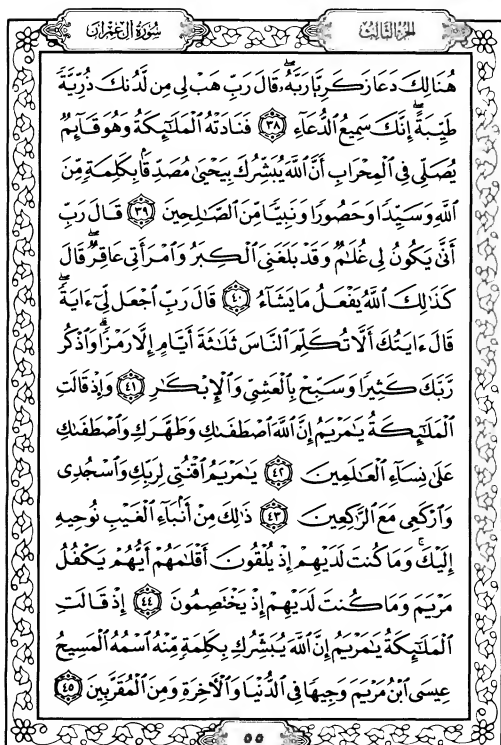 سُورَةُ آلِ عِمْرَانَ
الجُزْءُ الثَّالِثُ
هُنَالِكَ دَعَا زَكَرِيَّا رَبَّهُۥ قَالَ رَبِّ هَبْ لِى مِن لَّدُنكَ ذُرِّيَّةً
طَيِّبَةً إِنَّكَ سَمِيعُ ٱلدُّعَآءِ ٣٨ فَنَادَتْهُ ٱلْمَلَٰٓئِكَةُ وَهُوَ قَآئِمٌ
يُصَلِّى فِى ٱلْمِحْرَابِ أَنَّ ٱللَّهَ يُبَشِّرُكَ بِيَحْيَىٰ مُصَدِّقًۢا بِكَلِمَةٍ مِّنَ
ٱللَّهِ وَسَيِّدًا وَحَصُورًا وَنَبِيًّا مِّنَ ٱلصَّٰلِحِينَ ٣٩ قَالَ رَبِّ
أَنَّىٰ يَكُونُ لِى غُلَٰمٌ وَقَدْ بَلَغَنِىَ ٱلْكِبَرُ وَٱمْرَأَتِى عَاقِرٌ قَالَ
كَذَٰلِكَ ٱللَّهُ يَفْعَلُ مَا يَشَآءُ ٤٠ قَالَ رَبِّ ٱجْعَل لِّىٓ ءَايَةً
قَالَ ءَايَتُكَ أَلَّا تُكَلِّمَ ٱلنَّاسَ ثَلَٰثَةَ أَيَّامٍ إِلَّا رَمْزًا وَٱذْكُر
رَّبَّكَ كَثِيرًا وَسَبِّحْ بِٱلْعَشِىِّ وَٱلْإِبْكَٰرِ ٤١ وَإِذْ قَالَتِ
ٱلْمَلَٰٓئِكَةُ يَٰمَرْيَمُ إِنَّ ٱللَّهَ ٱصْطَفَىٰكِ وَطَهَّرَكِ وَٱصْطَفَىٰكِ
عَلَىٰ نِسَآءِ ٱلْعَٰلَمِينَ ٤٢ يَٰمَرْيَمُ ٱقْنُتِى لِرَبِّكِ وَٱسْجُدِى
وَٱرْكَعِى مَعَ ٱلرَّٰكِعِينَ ٤٣ ذَٰلِكَ مِنْ أَنۢبَآءِ ٱلْغَيْبِ نُوحِيهِ
إِلَيْكَ وَمَا كُنتَ لَدَيْهِمْ إِذْ يُلْقُونَ أَقْلَٰمَهُمْ أَيُّهُمْ يَكْفُلُ
مَرْيَمَ وَمَا كُنتَ لَدَيْهِمْ إِذْ يَخْتَصِمُونَ ٤٤ إِذْ قَالَتِ
ٱلْمَلَٰٓئِكَةُ يَٰمَرْيَمُ إِنَّ ٱللَّهَ يُبَشِّرُكِ بِكَلِمَةٍ مِّنْهُ ٱسْمُهُ ٱلْمَسِيحُ
عِيسَى ٱبْنُ مَرْيَمَ وَجِيهًا فِى ٱلدُّنْيَا وَٱلْءَاخِرَةِ وَمِنَ ٱلْمُقَرَّبِينَ ٤٥
٥٥